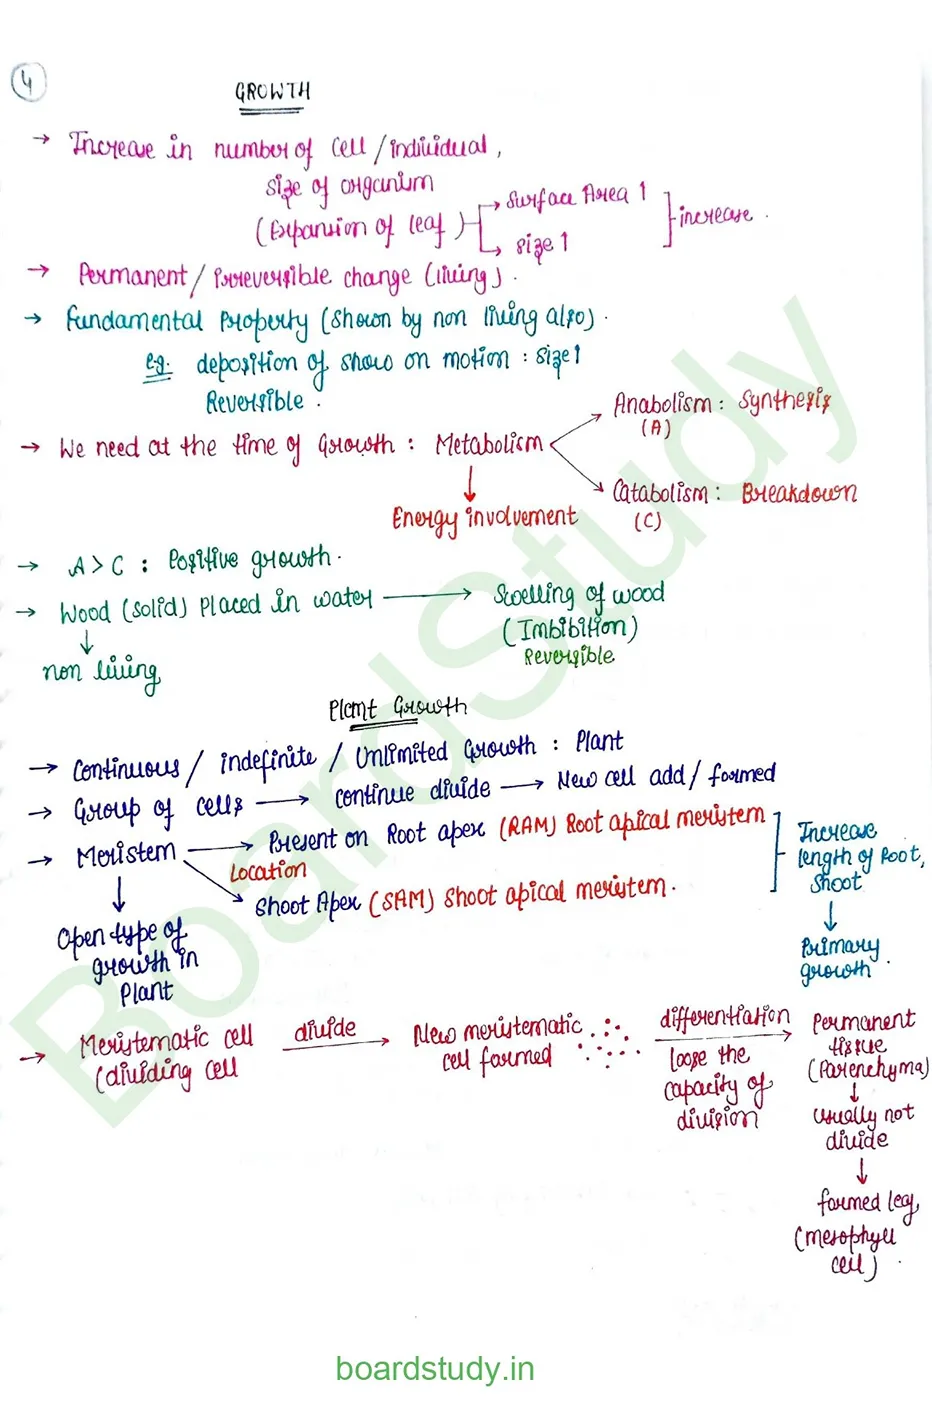 4
GROWTH
→ Increase in number of cell / individual,
size of organism
(Expansion of leaf) → Surface Area ↑ ] increase.
→ size ↑
→ Permanent / Irreversible change (living).
→ Fundamental Property (shown by non living also).
e.g. deposition of snow on motion : size ↑
Reversible.
→ We need at the time of Growth : Metabolism
Anabolism : Synthesis
(A)
Catabolism : Breakdown
(C)
↓
Energy involvement
→ A > C : Positive growth.
→ Wood (solid) placed in water → Swelling of wood
(Imbibition)
Reversible
↓
non living
Plant Growth
→ Continuous / indefinite / Unlimited Growth : Plant
→ Group of cells → continue divide → New cell add / formed
→ Meristem → Present on Root apex (RAM) Root apical meristem
Location
Shoot Apex (SAM) Shoot apical meristem.
Increase
length of Root,
Shoot
↓
Primary
growth.
↓
Open type of
growth in
Plant
→ Meristematic cell
(dividing cell
divide →
New meristematic
cell formed
differentiation →
loose the
capacity of
division
Permanent
tissue
(Parenchyma)
↓
usually not
divide
↓
formed leaf,
(mesophyll
cell).
BoardStudy
boardstudy.in